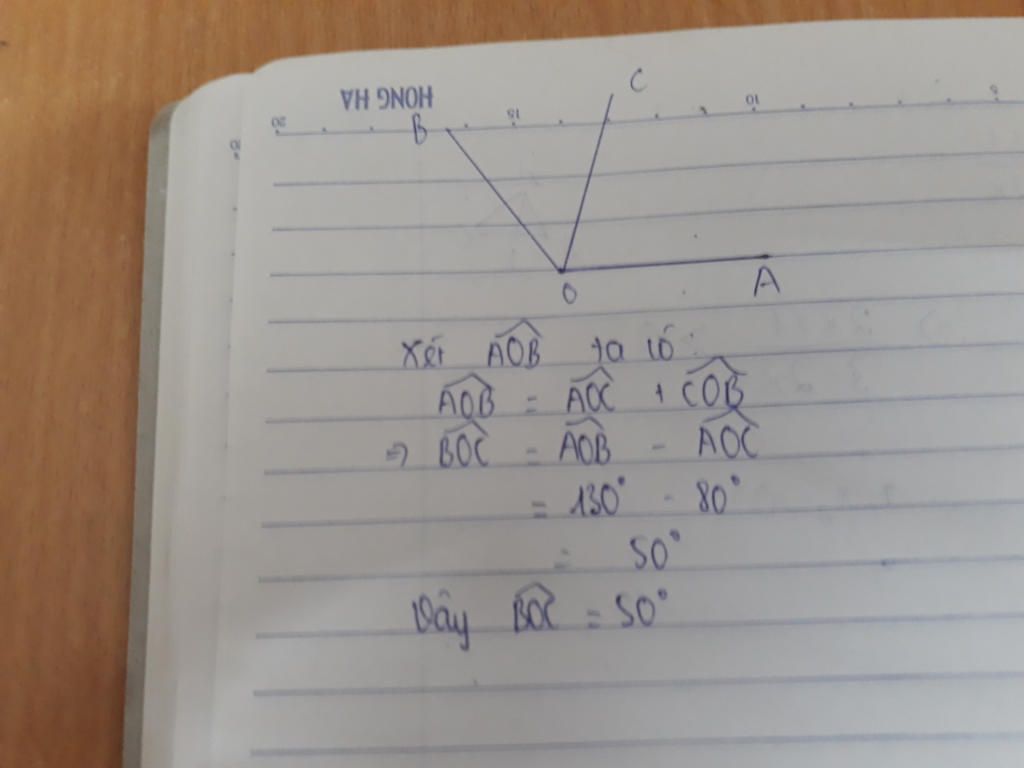 HONG HA
20 15 10 5
20
C
B
O
A
Xét AOB ta có:
AOB = AOC + COB
=> BOC = AOB - AOC
= 130° - 80°
= 50°
Vậy BOC = 50°